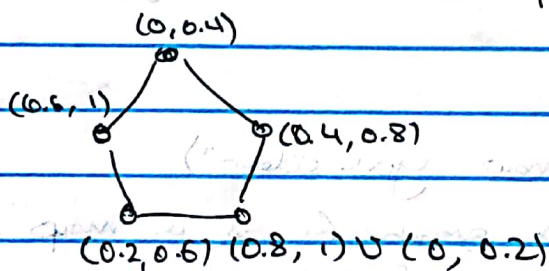 (0, 0.4)
(0.6, 1)
(0.4, 0.8)
(0.2, 0.6) (0.8, 1) U (0, 0.2)